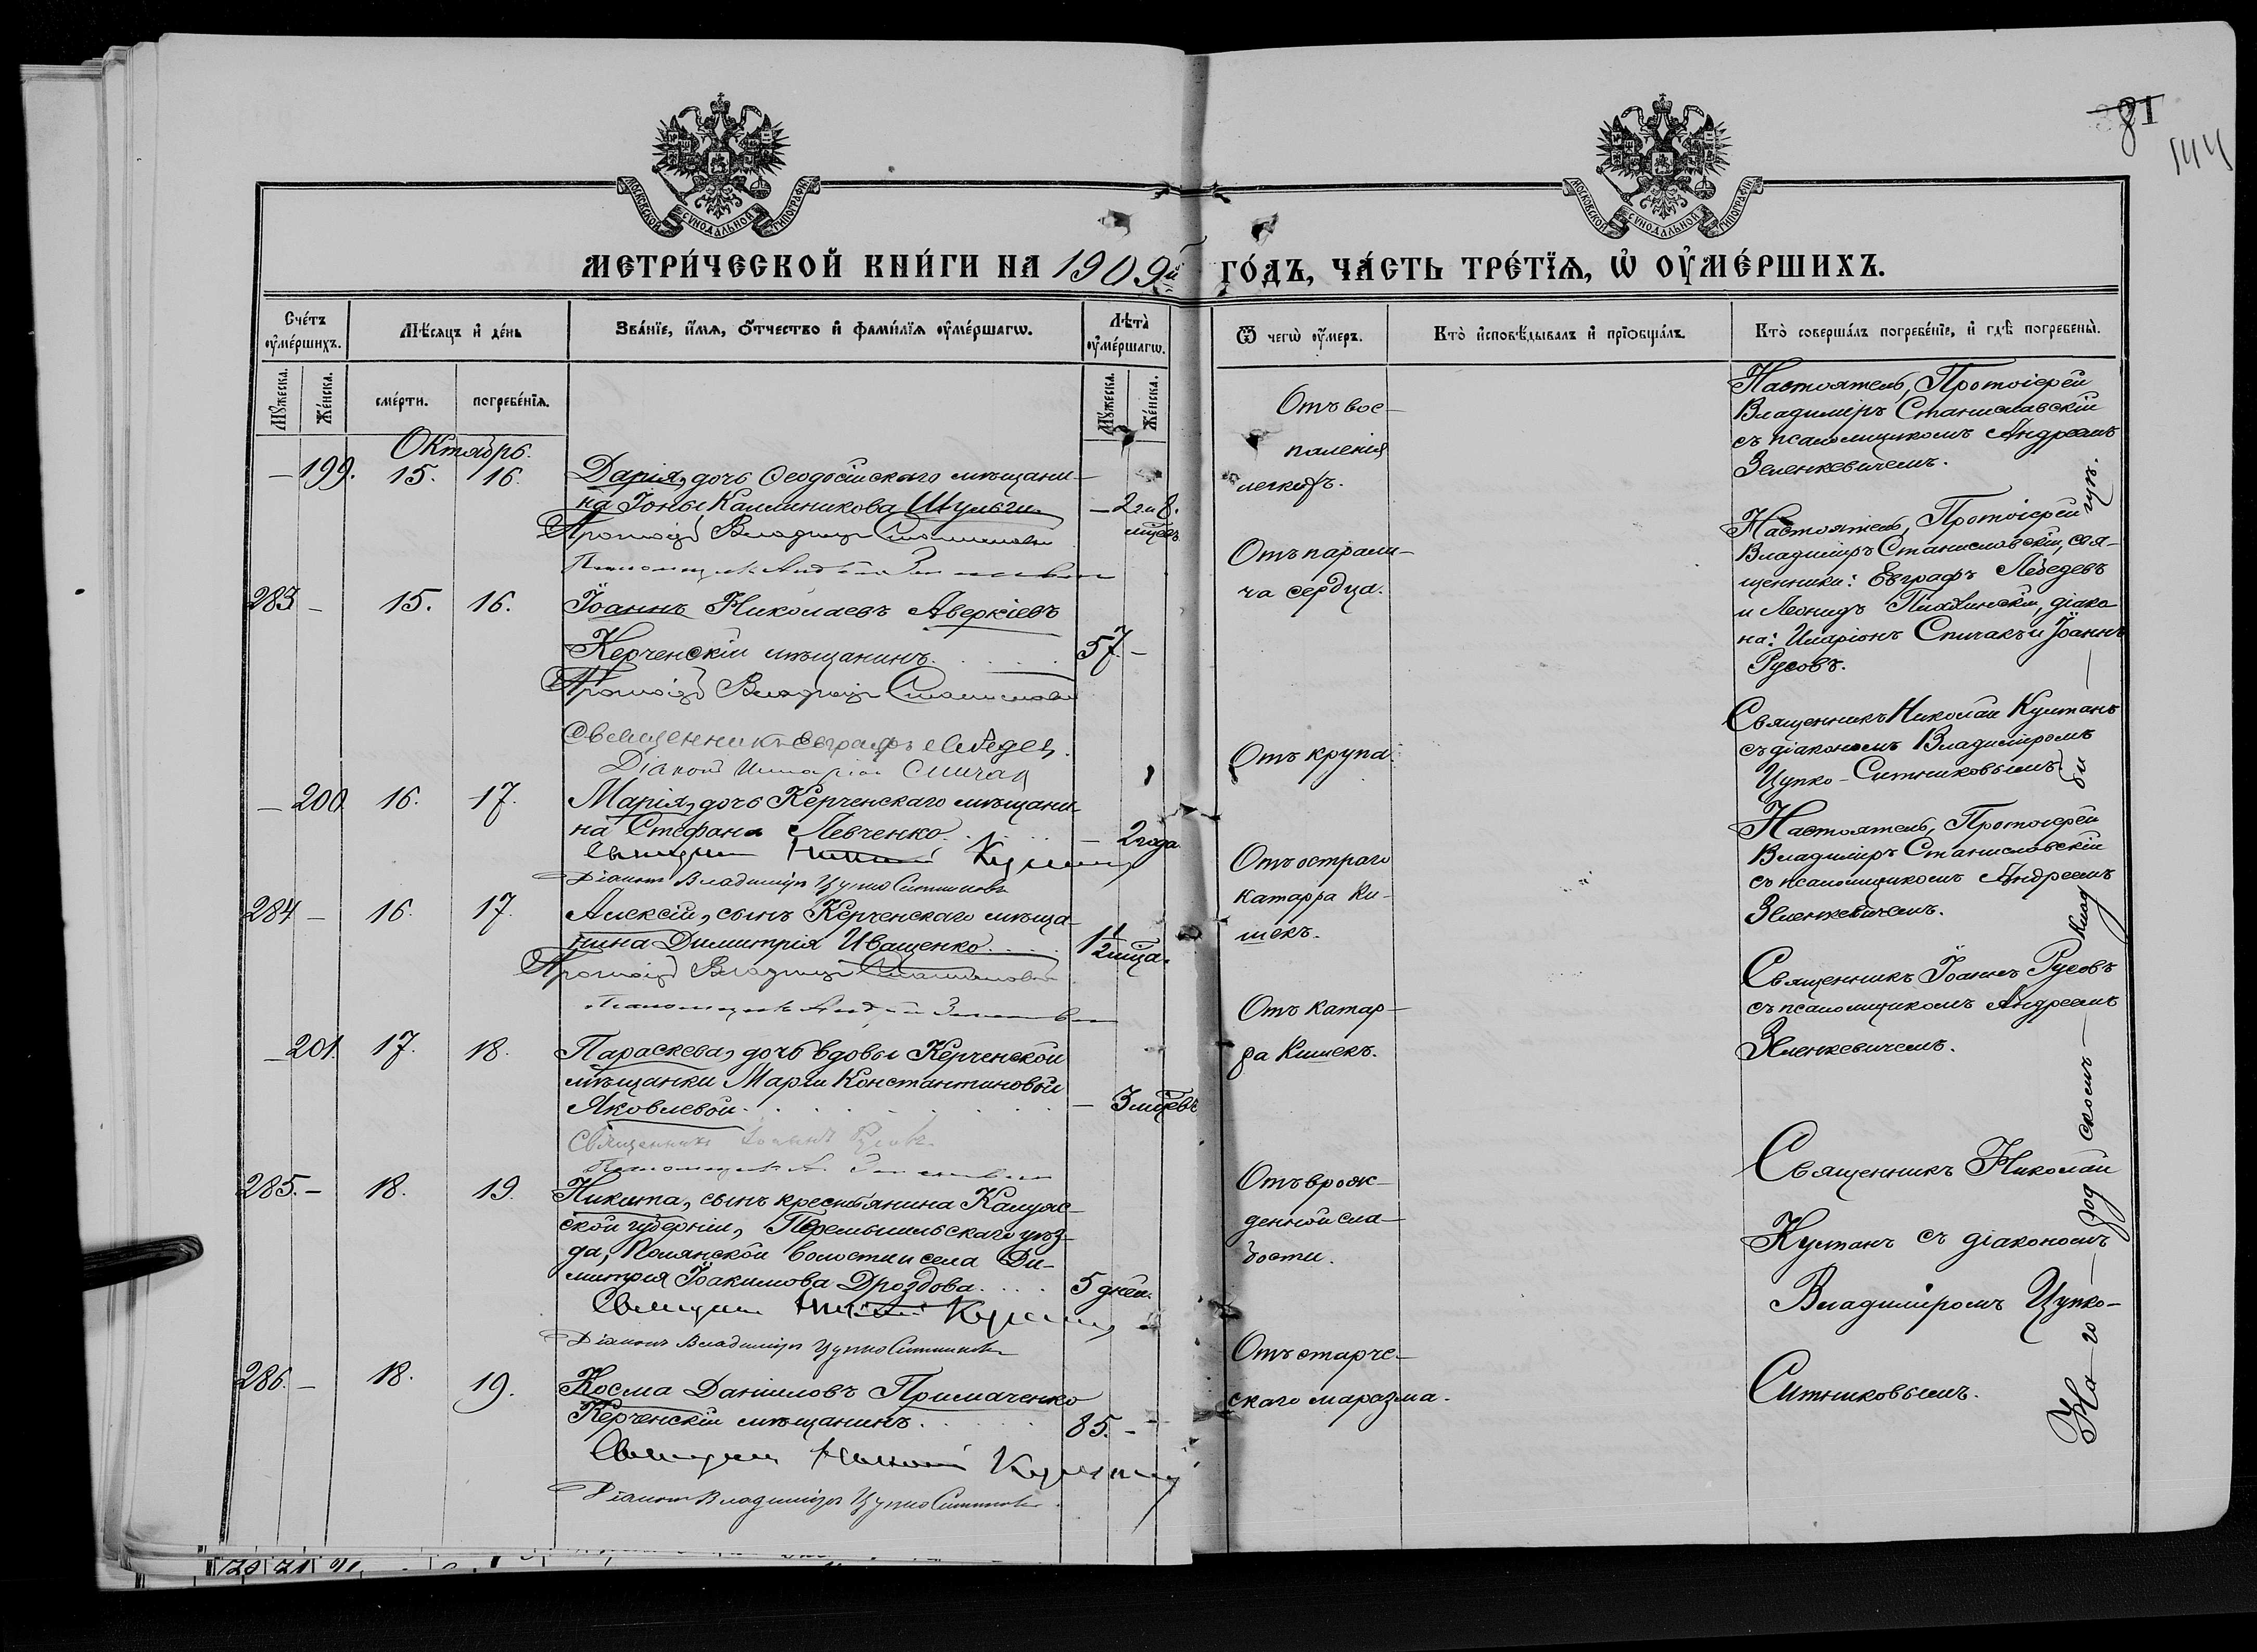 81
144
МОСКОВСКОЙ СѴНОДАЛЬНОЙ ТИПОГРАФІИ
МОСКОВСКОЙ СѴНОДАЛЬНОЙ ТИПОГРАФІИ
МЕТРИ́ЧЕСКОЙ КНИ́ГИ НА 1909й ГО́ДЪ, ЧА́СТЬ ТРЕ́ТЇѦ, Ѡ҆ ОУ҆МЕ́РШИХЪ.
Сче́тъ оу҆ме́ршихъ.
Мѣ́сяцъ и҆ де́нь
Зва́нїе, и҆́мѧ, ѻ҆́тчество и҆ фами́лїѧ оу҆ме́ршагѡ.
Лѣ̑та̀ оу҆ме́ршагѡ.
Ѿ чегѡ̀ оу҆́меръ.
Кто̀ и҆сповѣ́дывалъ и҆ прїѡбща́лъ.
Кто̀ соверша́лъ погребе́нїе, и҆ гдѣ̀ погребены̀.
Мꙋ́жеска.
Же́нска.
сме́рти.
погребе́нїѧ.
Мꙋ́жеска.
Же́нска.
Октябрь.
– 199. 15. 16.
Дарія, дочь Ѳеодосійскаго мѣщани-
на Іоны Каллиникова Шульги.
– 2 г. и 8.
мѣсѣв
Протоіер Владимір Станиславскій
Псаломщикъ Андрей Зеленкевич
Отъ вос-
паленія
легкихъ.
Настоятель, Протоіерей
Владиміръ Станиславскій
съ псаломщикомъ Андреемъ
Зеленкевичемъ.
283 – 15. 16.
Іоаннъ Николаевъ Аверкіевъ
Керченскій мѣщанинъ.
57 –
Протоіер Владимір Станиславскій
Священникъ Евграфъ Лебедев.
Діаконъ Иларіон Спичак
Отъ парали-
ча сердца.
Настоятель, Протоіерей
Владиміръ Станиславскій, свя-
щенники: Евграфъ Лебедевъ
и Леонидъ діако
на: Иларіонъ Спичакъ и Іоаннъ
Русовъ.
– 200 16. 17.
Марія, дочь Керченскаго мѣщани-
на Стефана Левченко.
– 2 года
Священник Николай Култан
Діаконъ Владиміръ Цупко Ситниковъ
Отъ крупа.
Священникъ Николай Култанъ
съ діакономъ Владиміромъ
Цупко-Ситниковымъ.
284 – 16. 17.
Алексій, сынъ Керченскаго мѣща-
нина Димитрія Иващенко.
1½ мѣца.
Протоіер Владимір Станиславскій
Псаломщикъ Андрей Зеленкевич
Отъ остраго
катарра ки-
шекъ.
Настоятель, Протоіерей
Владиміръ Станиславскій
съ псаломщикомъ Андреемъ
Зеленкевичемъ.
– 201. 17. 18.
Параскева, дочь вдовы Керченской
мѣщанки Маріи Константиновой
Яковлевой.
– 3 мѣсѣвъ
Священникъ Іоаннъ Русовъ.
Псаломщикъ А. Зеленкевич
Отъ катар-
ра кишекъ.
Священникъ Іоаннъ Русовъ
съ псаломщикомъ Андреемъ
Зеленкевичемъ.
285. – 18. 19.
Никита, сынъ крестьянина Калуж-
ской губерніи, Перемышльскаго уѣз-
да, Полянской волости и села Ди-
митрія Іоакимова Дроздова.
5 дней.
Священник Николай Култан
Діаконъ Владиміръ Цупко Ситниковъ
Отъ врож-
денной сла-
бости.
Священникъ Николай
Култанъ съ діакономъ
Владиміромъ Цупко-
Ситниковымъ.
286. – 18. 19.
Косма Даніиловъ Примаченко
Керченскій мѣщанинъ.
85. –
Священник Николай Култан
Діаконъ Владиміръ Цупко Ситниковъ.
Отъ старче-
скаго маразма.
На го-род скомъ – клад би щѣ.